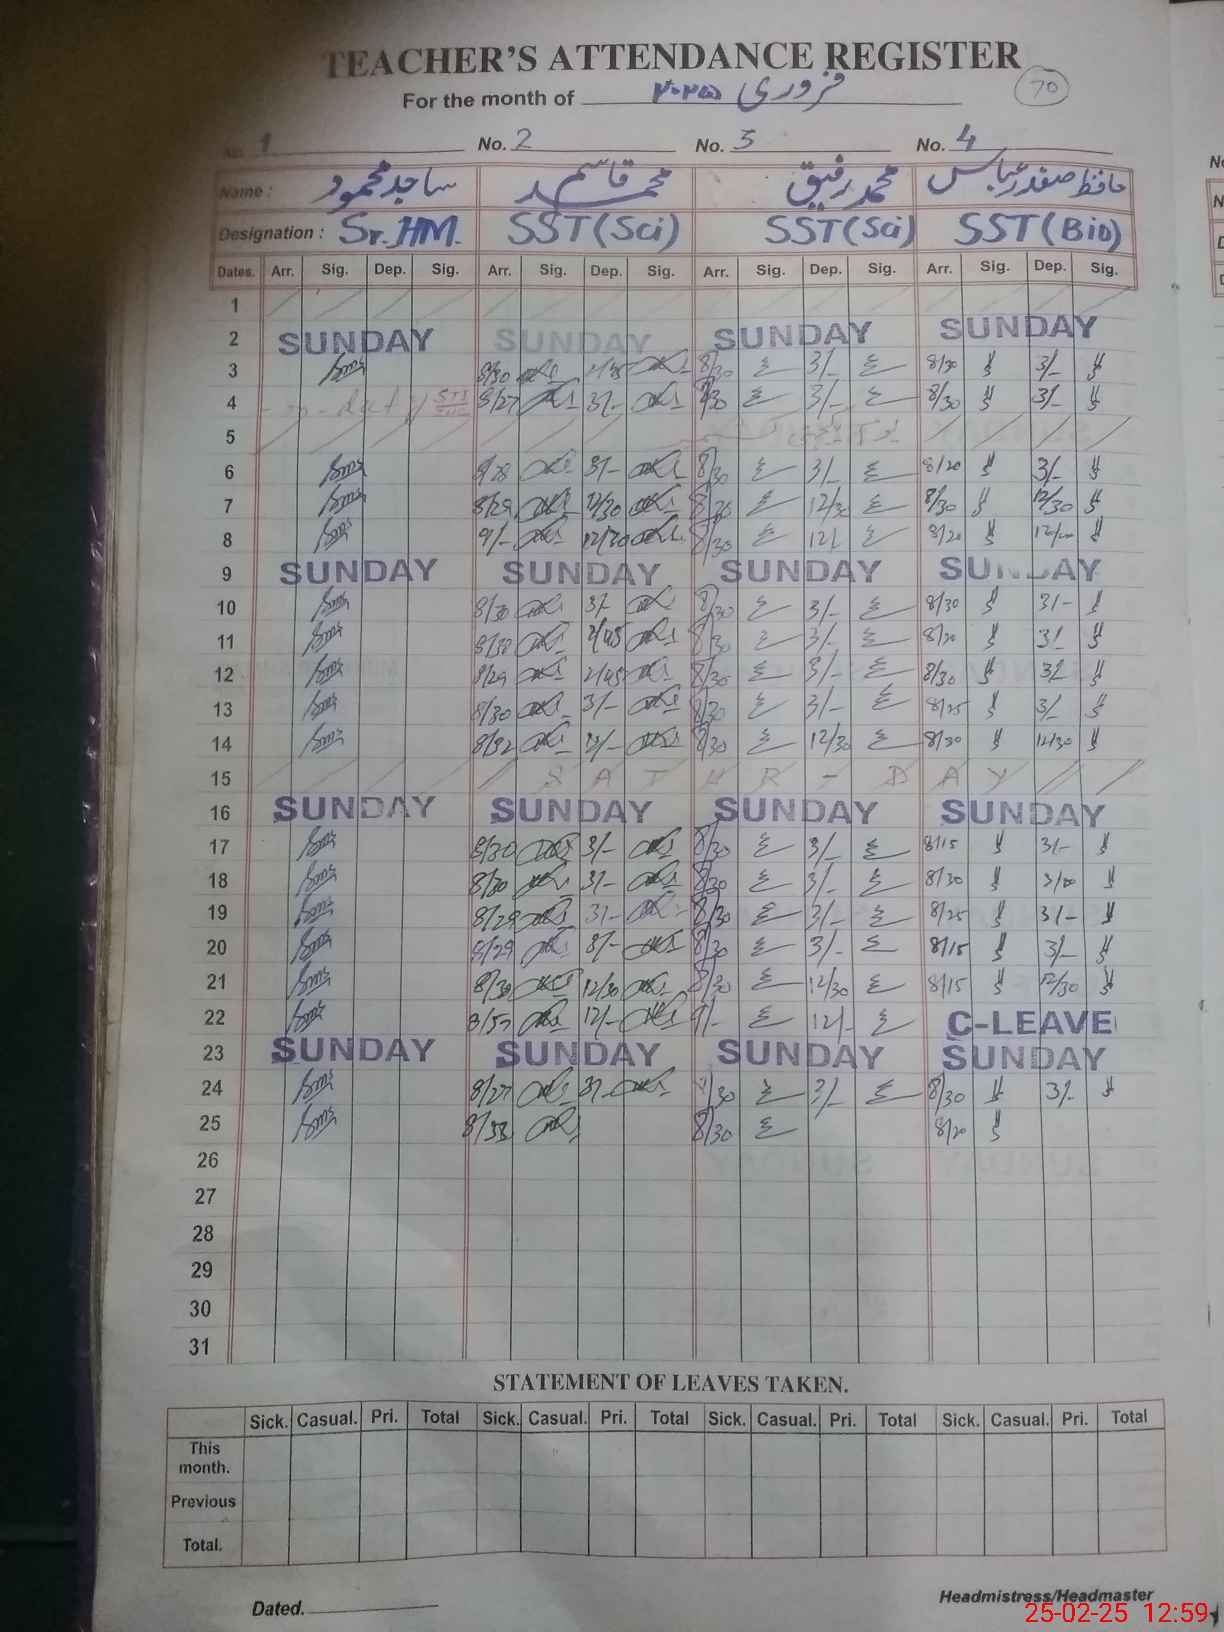 TEACHER'S ATTENDANCE REGISTER
For the month of فروری ۲۰۲۵ 70
No. 1 No. 2 No. 3 No. 4
Name : ساجد محمود محمد قاسم محمد رفیق حافظ صفدر عباس
Designation : Sr. HM. SST(Sci) SST(Sci) SST(Bio)
Dates. Arr. Sig. Dep. Sig. Arr. Sig. Dep. Sig. Arr. Sig. Dep. Sig. Arr. Sig. Dep. Sig.
1
2 SUNDAY SUNDAY SUNDAY SUNDAY
3 8/30 2/45 8/30 3/- 8/30 3/-
4 8/27 3/- 8/30 3/- 8/30 3/-
5
6 8/28 3/- 8/30 3/- 8/20 3/-
7 8/29 12/30 12/30 8/30 12/30
8 9/- 12/30 8/30 12/- 8/20
9 SUNDAY SUNDAY SUNDAY SUNDAY
10 8/30 3/- 8/30 3/- 8/30 3/-
11 2/45 8/30 3/- 8/20 3/-
12 8/29 2/45 8/30 3/- 8/30 3/-
13 8/30 3/- 8/30 3/- 8/25 3/-
14 8/32 8/30 12/30 8/30 12/30
15 S A T U R - D A Y
16 SUNDAY SUNDAY SUNDAY SUNDAY
17 8/30 3/- 8/30 3/- 8/15 3/-
18 8/30 3/- 8/30 3/- 8/30
19 8/29 3/- 8/30 3/- 8/25 3/-
20 8/29 3/- 8/30 3/- 8/15 3/-
21 8/30 12/30 8/30 12/30 8/15 12/30
22 8/57 12/- 9/- 12/- C-LEAVE
23 SUNDAY SUNDAY SUNDAY SUNDAY
24 8/27 3/- 8/30 3/- 8/30 3/-
25 8/33 8/30 8/20
26
27
28
29
30
31
STATEMENT OF LEAVES TAKEN.
Sick. Casual. Pri. Total Sick. Casual. Pri. Total Sick. Casual. Pri. Total Sick. Casual. Pri. Total
This
month.
Previous
Total.
Headmistress/Headmaster
Dated.
25-02-25 12:59